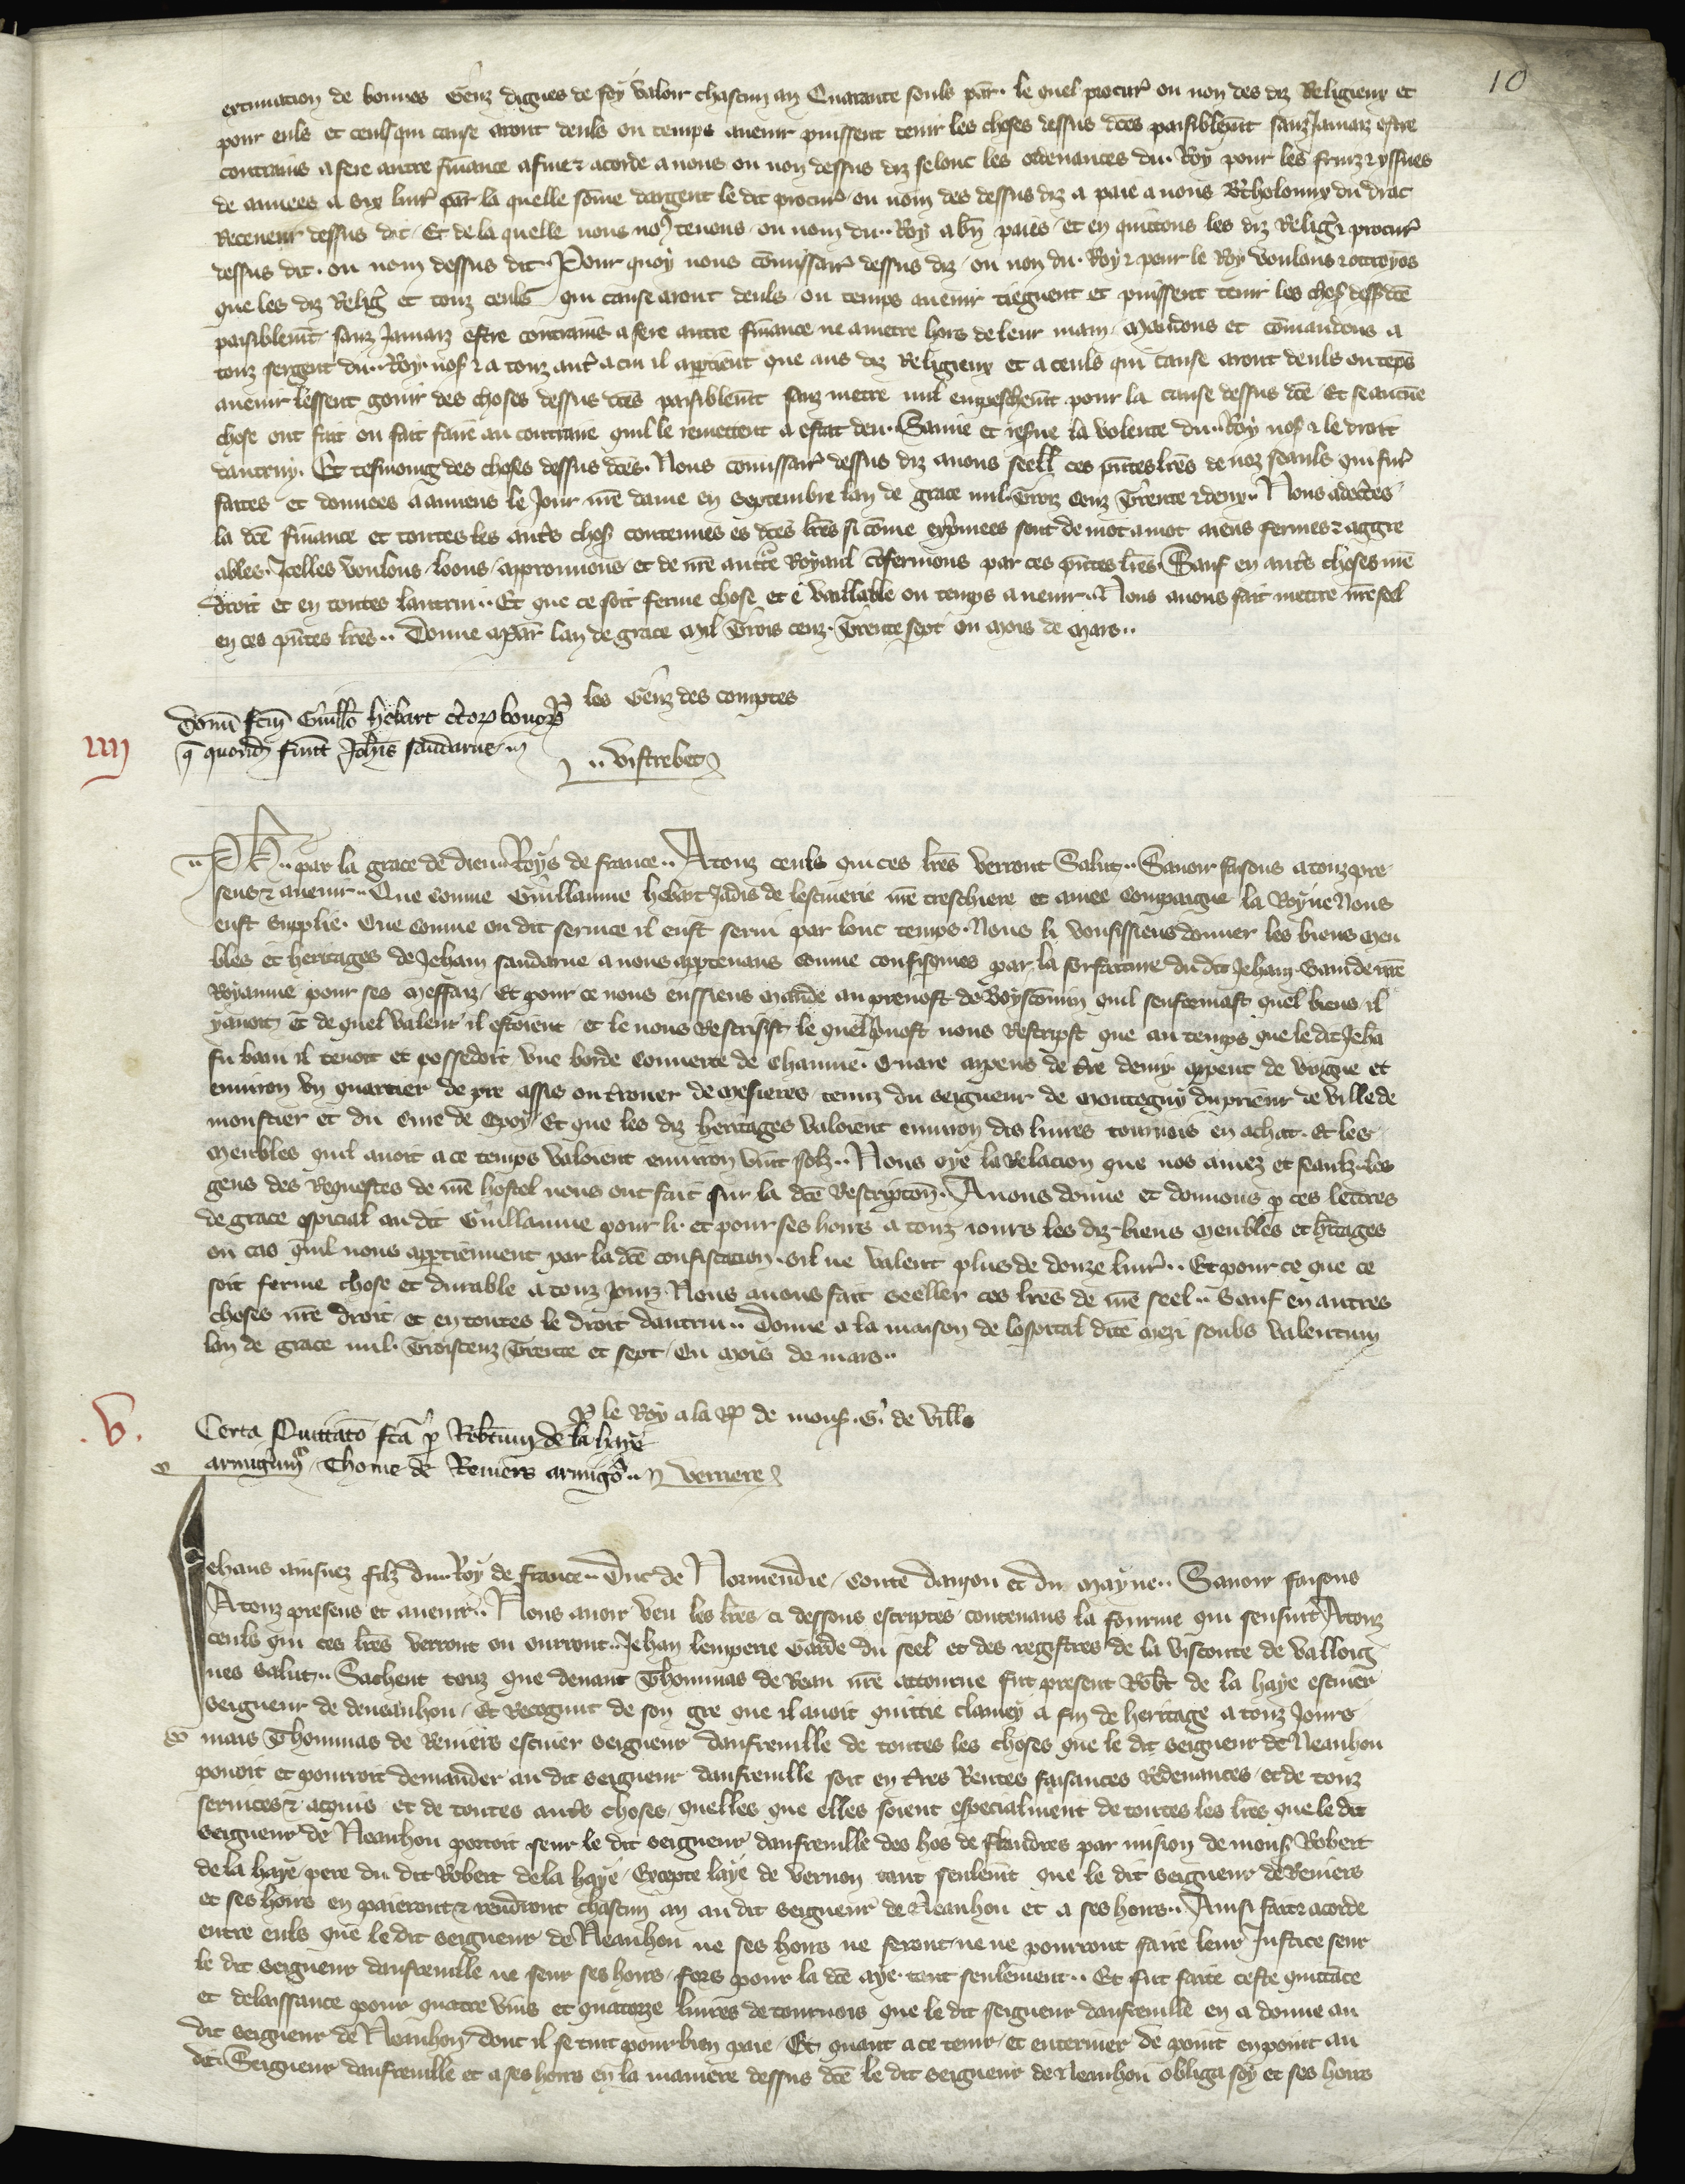 10
extimacion de bonnes Genz dignes de foy valoir chascun an Quarante souls par̃. le quel procur̃ ou non des diz Religieux et
pour euls et ceuls qui cause aront deuls ou temps avenir puissent tenir les choses dessus dc̃es paisiblem̃t sanz Jamaiz estre
contrains a fere autre finance a finer acorde a nous ou non dessus diz selonc les ordenances du Roy pour les fruiz ⁊ yssues
de annees a six livr̃ par̃ la quelle som̃e dargent le dit procur̃ ou nom des dessus diz a paie a nous B̃tholomy du drac
Receveur dessus dit / Et de la quelle nous no⁹ tenons / ou nom du Roy a bñ paiés / et en quittons les diz Religˢ ⁊ procur̃
dessus dit. ou nom dessus dit. Pour quoy nous com̃issair̃ dessus diz / ou non du Roy ⁊ pour le Roy voulons ⁊ ottroyos
que les diz Religˢ et touz ceuls qui cause aront deuls / ou temps avenir tiegnent et puissent tenir les chos̃ dess̃ dc̃e
paisiblem̃t sanz Jamaiz estre contrains a fere autre finance ne a metre hors de leur main. Mandons et com̃andons a
touz sergent du Roy nos̃ ⁊ a touz aut̃ a cui il apartient que aus diz Religieux et a ceuls qui cause aront deuls ou tẽps
avenir lessent gouir des choses dessus dc̃es paisiblem̃t sanz metre nul empeschem̃t pour la cause dessus dc̃e / Et se aucũe
chose ont fait ou fait faire au contraire quil le remettent a estat deu. Sauve et res̃ve la volente du Roy nos̃ ⁊ le droit
dautruy. Et tesmoing des choses dessus dc̃es. Nous com̃issair̃ dessus diz avons seell̃ ces p̃ntes lr̃es de noz seauls qui fur̃
faites et donnees a amiens le Jour nr̃e dame en Septembre lan de grace mil Troiz cenz Trente ⁊ deux. Nous adec̃tes
la dc̃e finance et toutes les aut̃s chos̃ contenues es dc̃es lr̃es si com̃e exp̃mees sont de mot a mot aiens fermes ⁊ aggre
ables. Jcelles voulons / loons / approuvons / et de nr̃e autt̃e Royaul cõfermons par ces p̃ntes lr̃es. Sauf en aut̃s choses nr̃e
droit et en toutes lautrui. Et que ce soit ferme chose et vaillable ou temps avenir. Nous avons fait mettre nr̃e seel
en ces p̃ntes lr̃es. Donne a par̃ lan de grace Mil Trois cenz. Trente sept ou mois de Mars.
ꝑ les Genz des comptes
Donũ fc̃m Guill̃o hebart c̃torꝫ bonorꝫ
q̃ quond̃ fuer̃t Joh̃is saudarue
vistrebec
IIII
Ph̃. par la grace de dieu Roys de france. A touz ceuls qui ces lr̃es verront Salut. Savoir faisons a touz pre
sens ⁊ avenir. Que comme Guillaume hebart Jadis de lescuierie nr̃e treschiere et amee Compaigne la Royne Nous
eust supplie. Que comme ou dit service il eust servi par lonc temps. Nous li vousissiens donner les biens Meu
bles et heritages de Jehan saudarue a nous apptenans comme confisqués par la forfaiture du dit Jehan. bani de nr̃e
Royaume pour ses meffaiz / Et pour ce nous eussiens mande au prevost de Boyscomũ quil senfermast quel biens il
y avoit / Et de quel valeur il estoient / et le nous Rescrisist le quel p̃vost nous Rescripst que au temps que le dit Jehã
fu bani il tenoit et possedoit une borde couverte de chaume. Quatre arpens de t̃re demy arpent de vigne et
environ un quartier de pre assis ou trouer de Mesieres / tenuz du seigneur de Montegny du prieur de ville de
monstier et du Sire de Cpoy / Et que les diz heritages valoient environ dis livres tournois en achat. Et les
Meubles quil avoit a ce temps valoient environ vint solz. Nous oye la Relacion que nos amez et feaulz les
gens des Requestes de nr̃e hostel nous ont fait sur la dc̃e Rescripcoñ. Avons donne et donnons ꝑ ces lettres
de grace special au dit Guillaume pour li. et pour ses hoirs a touz iours les diz biens meubles et h̃itages
ou cas quil nous apptiennent par la dc̃e confiscacion. sil ne valent plus de douze livr̃. Et pour ce que ce
soit ferme chose et durable a touz jours Nous avons fait Seeller ces lr̃es de nr̃e seel. Sauf en autres
choses nr̃e droit / et en toutes le droit dautrui. Donne a la maison de lospital dite Mezi soubs valentuin
lan de grace mil. Troiscenz Trente et sept / Ou mois de mars.
ꝑ le Roy a la Rꝫ de mons̃. G. de vill̃e
Certa Quittac̃o fc̃a ꝑ Rob̃tum de la haye
armigũm Thome de Reniers armigõ. verriere
.V.
Jehans ainsnez filz du Roy de france. Duc de Normendie / Conte danjou et du Mayne. Savoir faisons
A touz presens et avenir. Nous avoir veu les lr̃es ci dessous escriptes contenans la fourme qui sensuit. A touz
ceuls qui ces lr̃es verront ou ourront. Jehan lemperie Garde du seel et des registres de la visconte de valloig
nes salut. Sachent touz que devant Thommas de Rean nr̃e Attourne fut present Rob̃t de la haye escuier
Seigneur de deneauhou / Et Recognut de son gre que il avoit quittie clamey a fin de heritage a touz Jours
mais Thommas de Reniers escuier Seigneur danfreville de toutes les choses que le dit Seigneur de Neauhou
povoit et pourroit demander au dit seigneur danfreville soit en t̃res Rentes faisances Redevances / et de touz
services ⁊ acquis et de toutes aut̃s choses / quelles que elles soient especialment de toutes les lr̃es que le dit
Seigneur de Neauhou portoit seur le dit seigneur danfreville des hos de flandres par mision de mons̃ Robert
de la haye / pere du dit Robert de la haye / Excepte laye de vernon tant seulem̃t que le dit seigneur de Reniers
et ses hoirs en paieront ⁊ rendront chascun an au dit seigneur de Neauhou et a ses hoirs. Ainsi fait ⁊ acorde
entre euls que le dit seigneur de Neauhou ne ses hoirs ne feront ne ne pourront faire leur Justice seur
le dit seigneur danfreville ne seur ses hoirs / fors pour la dc̃e aye tant seulement. Et fut faite ceste quittãce
et delaissance pour quatre vins et quatorze livres de tournois que le dit seigneur danfreville en a donne au
dit seigneur de Neauhou / dont il se tint pour bien paie / Et quant a ce tenir / et enteriner de point en point au
dit Seigneur danfreville et a ses hoirs en la maniere dessus dc̃e le dit seigneur de Neauhou obliga soy et ses hoirs